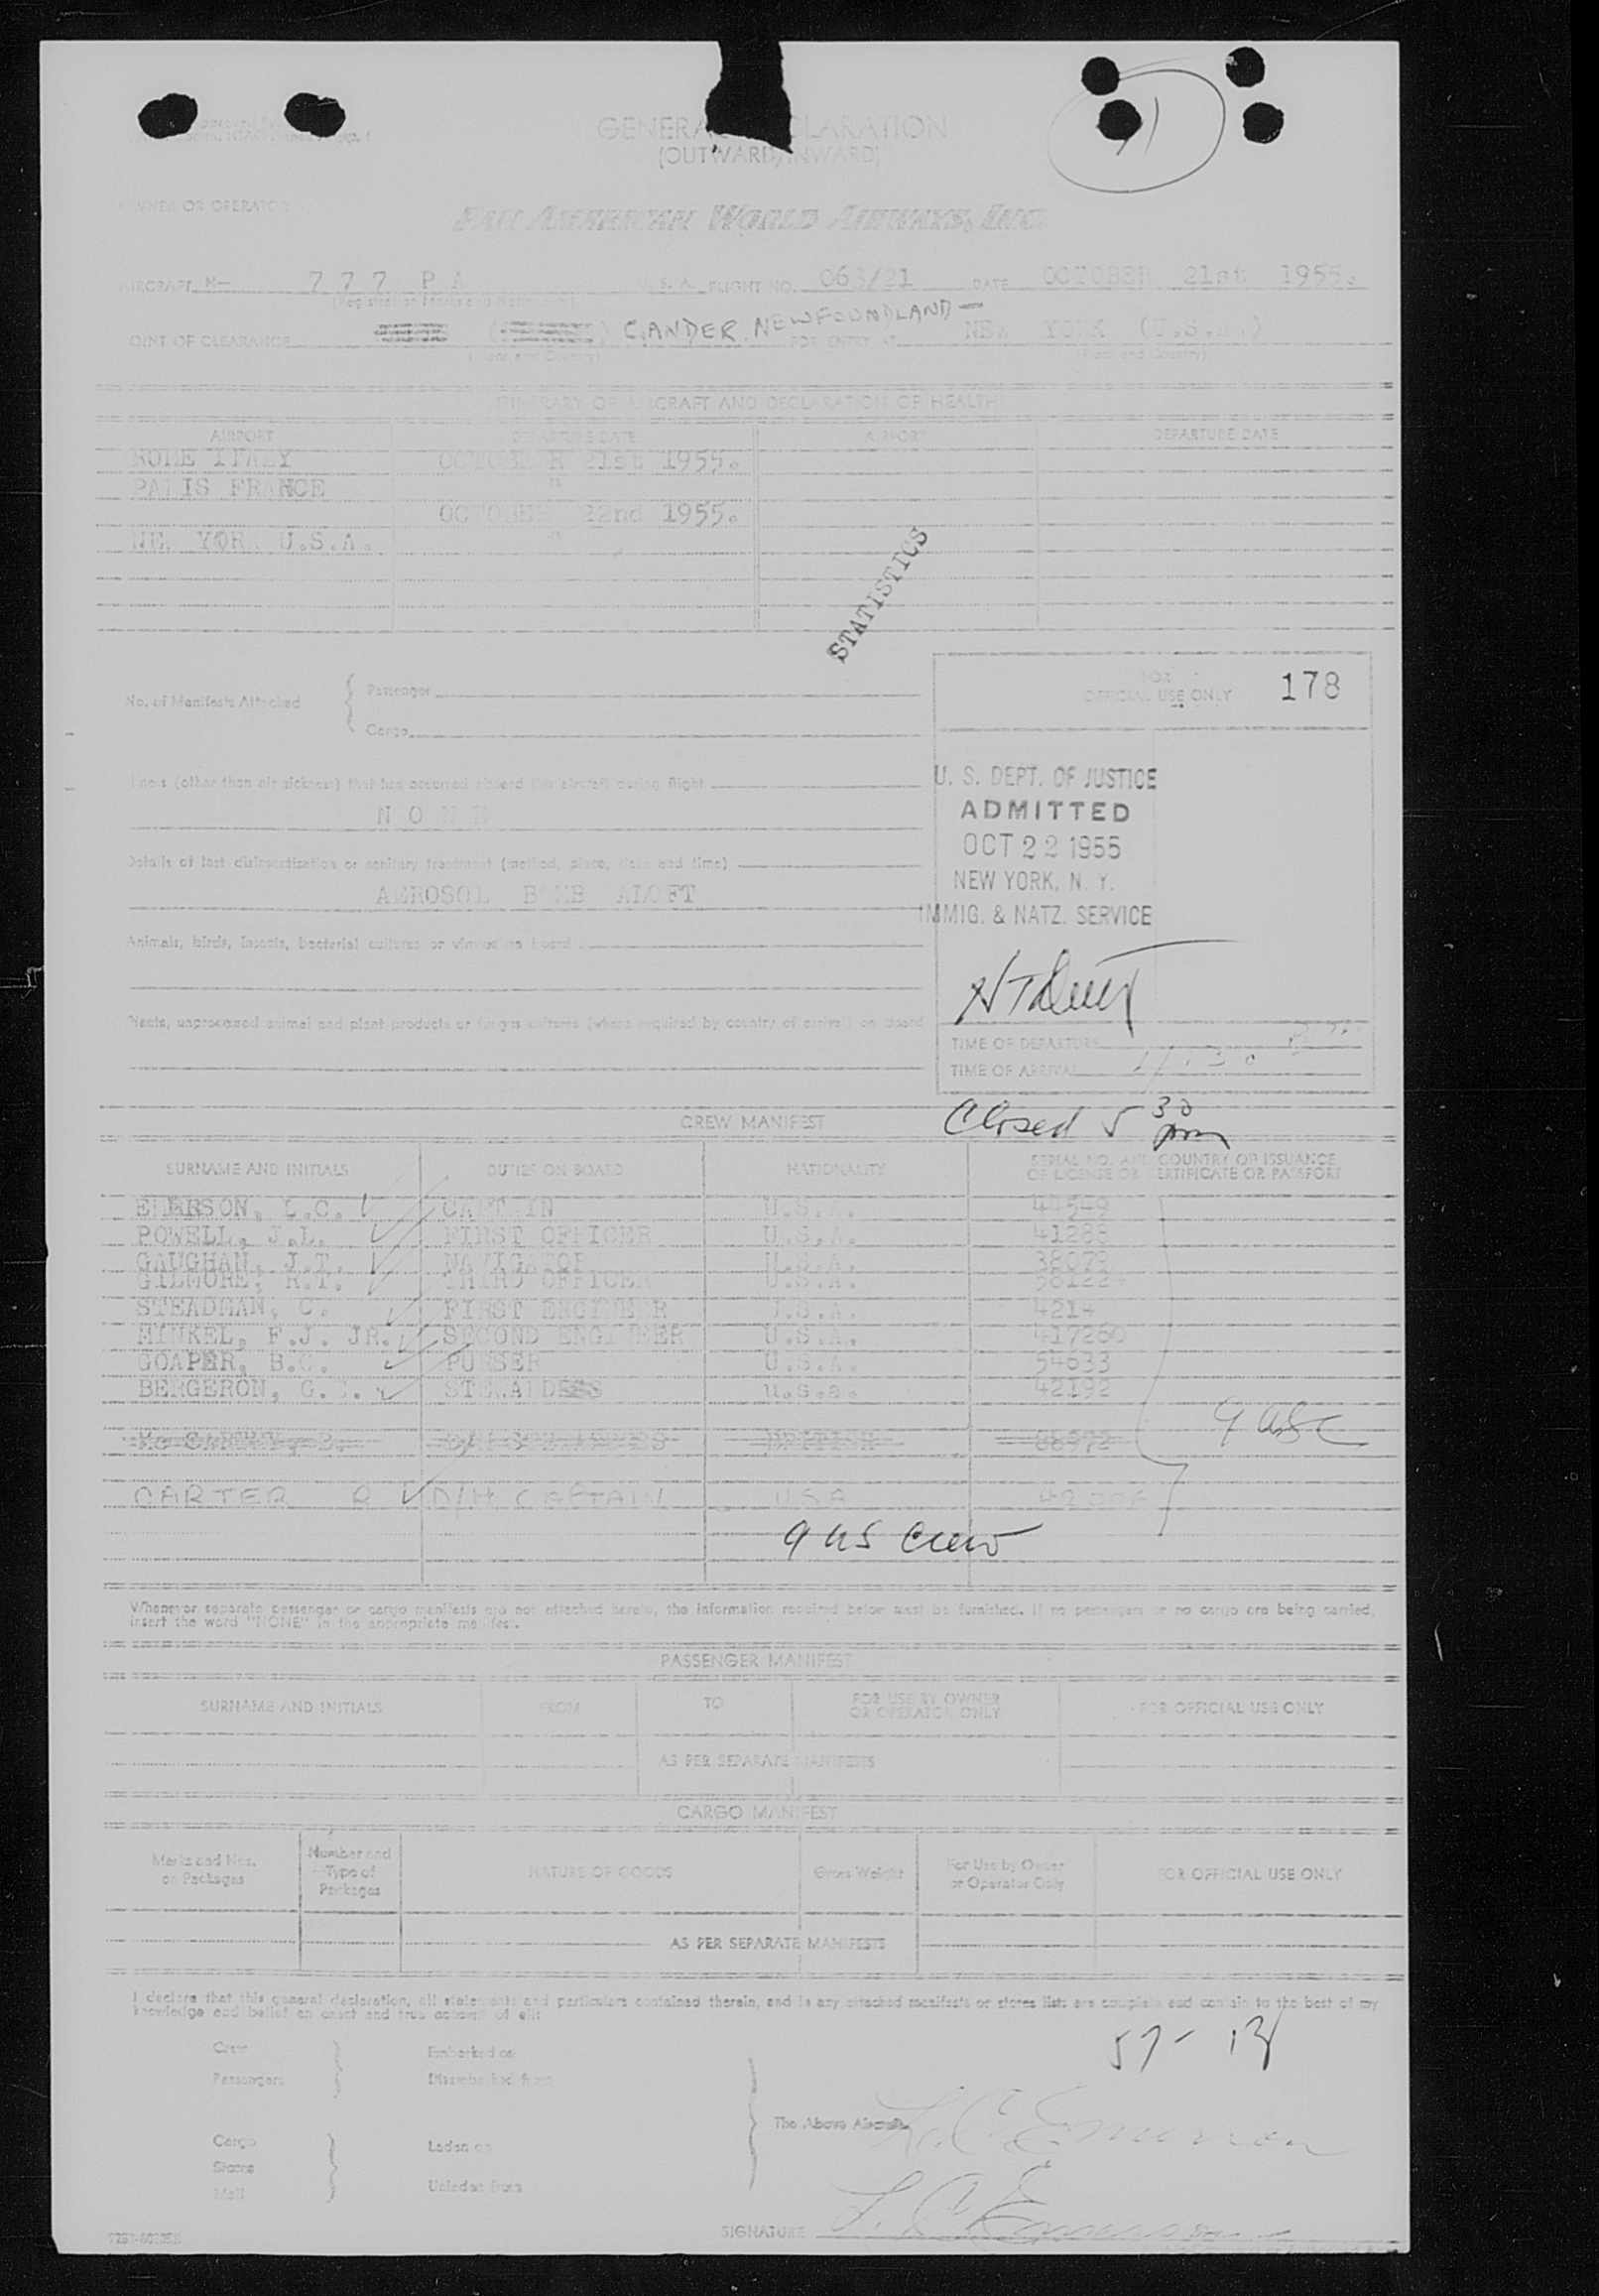 GENERAL DECLARATION
(OUTWARD/INWARD)
OWNER OR OPERATOR
PAN AMERICAN WORLD AIRWAYS, INC.
AIRCRAFT N- 777 PA U.S.A. FLIGHT NO. 063/21 DATE OCTOBER 21st 1955.
POINT OF CLEARANCE GANDER, NEWFOUNDLAND — FOR ENTRY AT NEW YORK (U.S.A.)
(Place and Country) (Place and Country)
ITINERARY OF AIRCRAFT AND DECLARATION OF HEALTH
AIRPORT DEPARTURE DATE AIRPORT DEPARTURE DATE
ROME ITALY OCTOBER 21st 1955.
PARIS FRANCE "
OCTOBER 22nd 1955.
NEW YORK U.S.A. "
STATISTICS
No. of Manifests Attached { Passenger
Cargo
FOR OFFICIAL USE ONLY 178
Illness (other than air sickness) that has occurred aboard this aircraft during flight
NONE
U. S. DEPT. OF JUSTICE
ADMITTED
OCT 22 1955
NEW YORK, N. Y.
IMMIG. & NATZ. SERVICE
Details of last disinsectization or sanitary treatment (method, place, date and time)
AEROSOL BOMB ALOFT
Animals, birds, insects, bacterial cultures or viruses on board
Meats, unprocessed animal and plant products or fungus cultures (where required by country of arrival) on board
TIME OF DEPARTURE
TIME OF ARRIVAL
CREW MANIFEST
Closed 5 30 pm
SURNAME AND INITIALS DUTIES ON BOARD NATIONALITY SERIAL NO. AND COUNTRY OR ISSUANCE OF LICENSE OR CERTIFICATE OR PASSPORT
EMERSON, L.C. CAPTAIN U.S.A.
POWELL, J.L. FIRST OFFICER U.S.A. 41288
GAUGHAN, J.T. NAVIGATOR U.S.A. 38079
GILMORE, R.T. THIRD OFFICER U.S.A.
STEADMAN, C. FIRST ENGINEER U.S.A.
HINKEL, F.J. JR. SECOND ENGINEER U.S.A. 417260
GOAPER, B.C. PURSER U.S.A. 54633
BERGERON, G. STEWARDESS u.s.a. 42192
9 USC
CARTER R D/H CAPTAIN USA
9 US Crew
Whenever separate passenger or cargo manifests are not attached hereto, the information required below must be furnished. If no passengers or no cargo are being carried,
insert the word "NONE" in the appropriate manifest.
PASSENGER MANIFEST
SURNAME AND INITIALS FROM TO FOR USE BY OWNER OR OPERATOR ONLY FOR OFFICIAL USE ONLY
AS PER SEPARATE MANIFESTS
CARGO MANIFEST
Marks and Nos. on Packages Number and Type of Packages NATURE OF GOODS Gross Weight For Use by Owner or Operator Only FOR OFFICIAL USE ONLY
AS PER SEPARATE MANIFESTS
I declare that this general declaration, all statements and particulars contained therein, and in any attached manifests or stores lists are complete and contain to the best of my
knowledge and belief an exact and true account of all:
Crew Embarked on
Passengers Disembarked from
The Above Aircraft L. C. Emerson
Cargo Laden on
Stores
Mail Unladen from
SIGNATURE L. C. Emerson